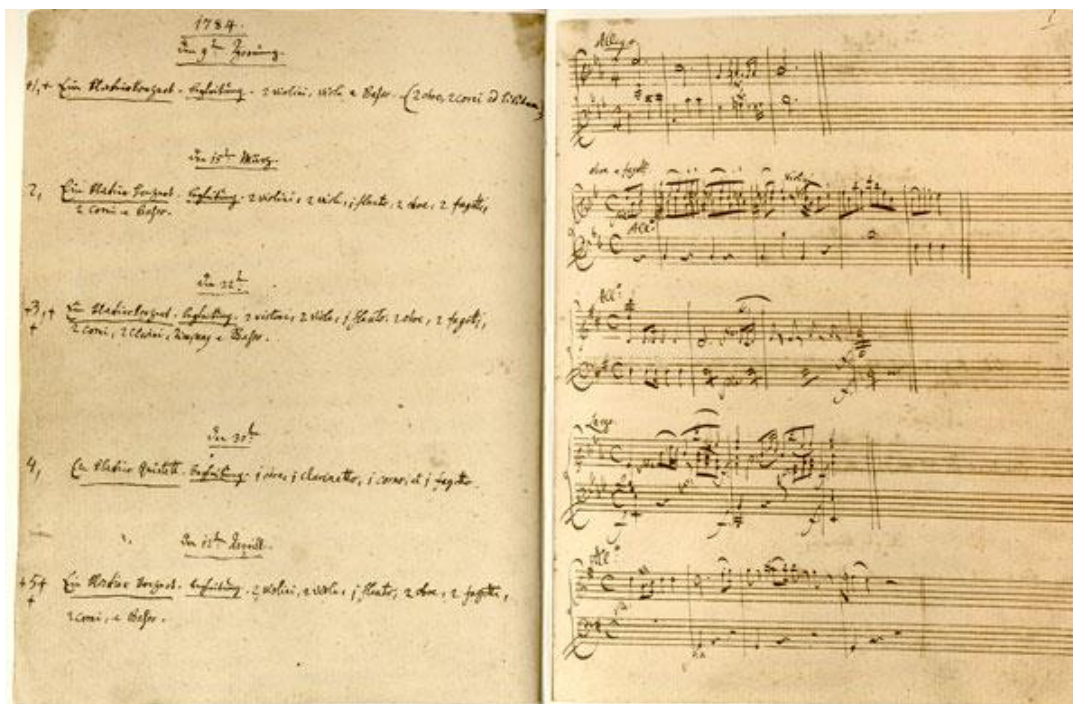 1784.
Den 9ten Hornung.
+1,+ Ein Klavierkonzert. Begleitung. 2 violini, viola e Baßo. (2 oboe, 2 corni ad libitum)
Den 15ten März.
2, Ein Klavier konzert. Begleitung. 2 violini, 2 viole, 1 flauto, 2 oboe, 2 fagotti,
2 corni e Baßo.
Den 22t
+3,+ Ein Klavierkonzert. Begleitung. 2 violini, 2 viole, 1 flauto, 2 oboe, 2 fagotti,
+ 2 corni, 2 clarini, e Baßo.
Den 30t
4, Ein Klavier Quintett. Begleitung. 1 oboe, 1 clarinetto, 1 corno, et 1 fagotto.
Den 12ten Aprill.
+5+ Ein Klavier konzert. Begleitung. 2 violini, 2 viole, 1 flauto, 2 oboe, 2 fagotti,
+ 2 corni, e Baßo.
1
Allegro
oboe e fagotti
violini
Allo
Allo
Largo
Allo